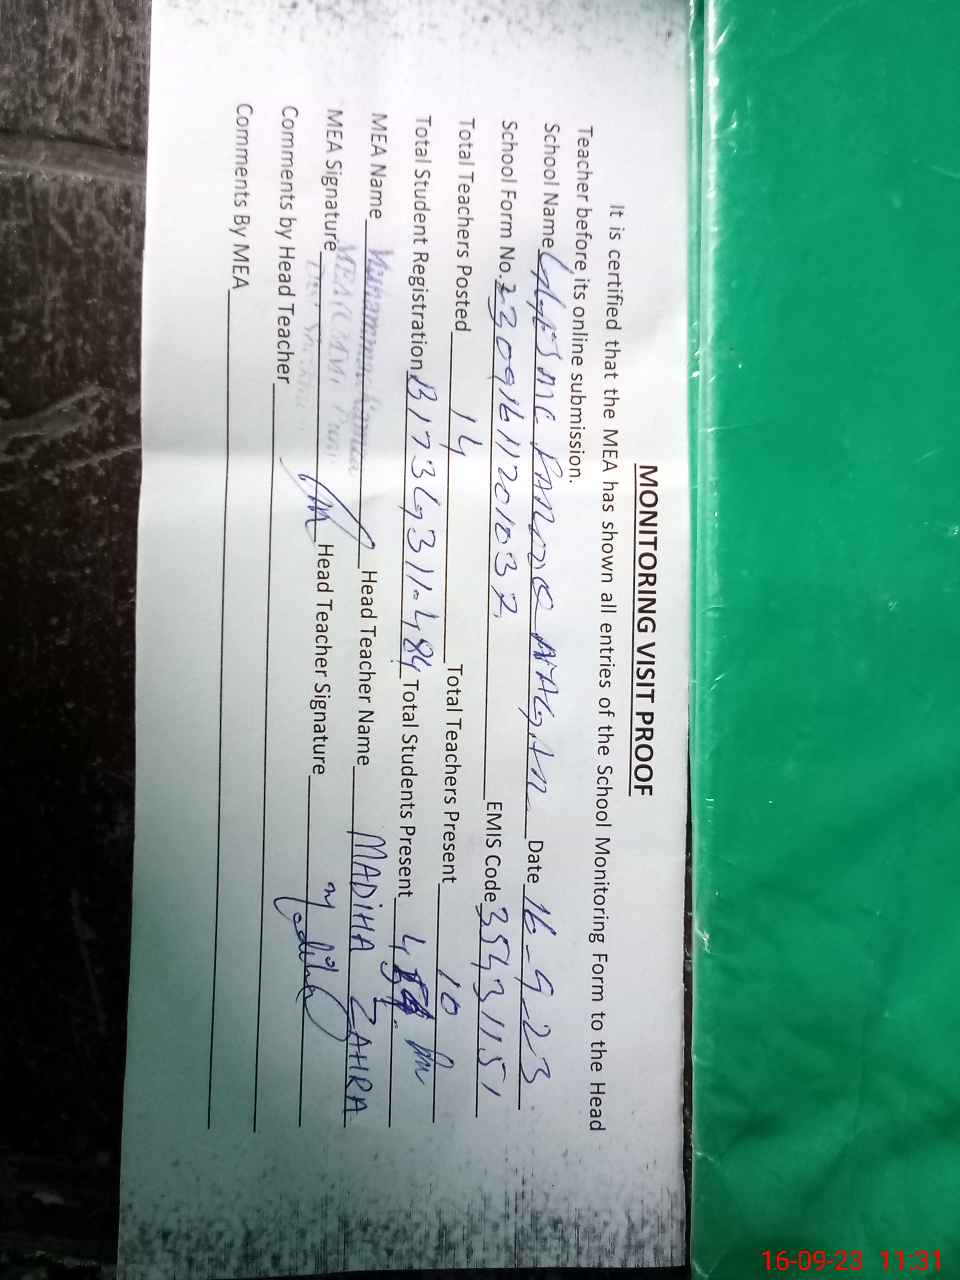 MONITORING VISIT PROOF
It is certified that the MEA has shown all entries of the School Monitoring Form to the Head
Teacher before its online submission.
School Name NAGIAN Date 16-9-23
School Form No. EMIS Code 35431151
Total Teachers Posted 14 Total Teachers Present 10
Total Student Registration Total Students Present
MEA Name Head Teacher Name MADIHA ZAHRA
MEA Signature Head Teacher Signature Madiha
Comments by Head Teacher
Comments By MEA
16-09-23 11:31